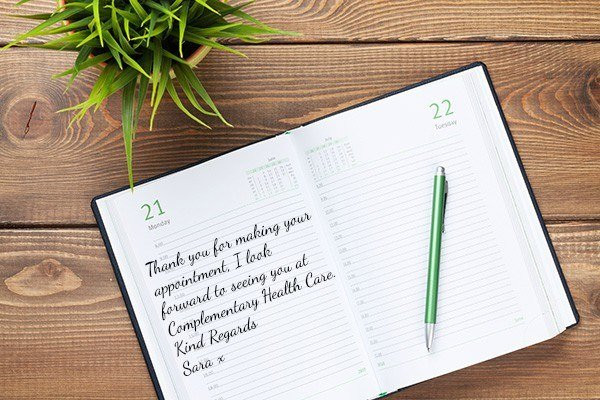 21
Monday
Thank you for making your
appointment, I look
forward to seeing you at
Complementary Health Care.
Kind Regards
Sara x
22
Tuesday